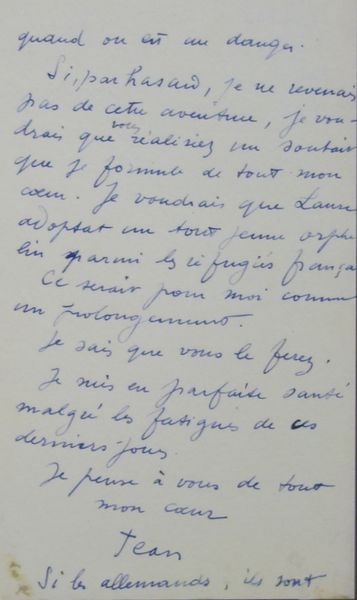 quand on est au danger.
Si, par hasard, je ne revenais
pas de cette aventure, je vou-
drais que vous réalisiez un souhait
que je formule de tout mon
cœur. Je voudrais que Laure
adoptat un tout jeune orphe
lin parmi les réfugiés frança
Ce serait pour moi comme
un prolongement.
Je sais que vous le ferez.
Je suis en parfaite santé
malgré les fatigues de ces
derniers jours.
Je pense à vous de tout
mon cœur
Jean
Si les allemands, ils sont